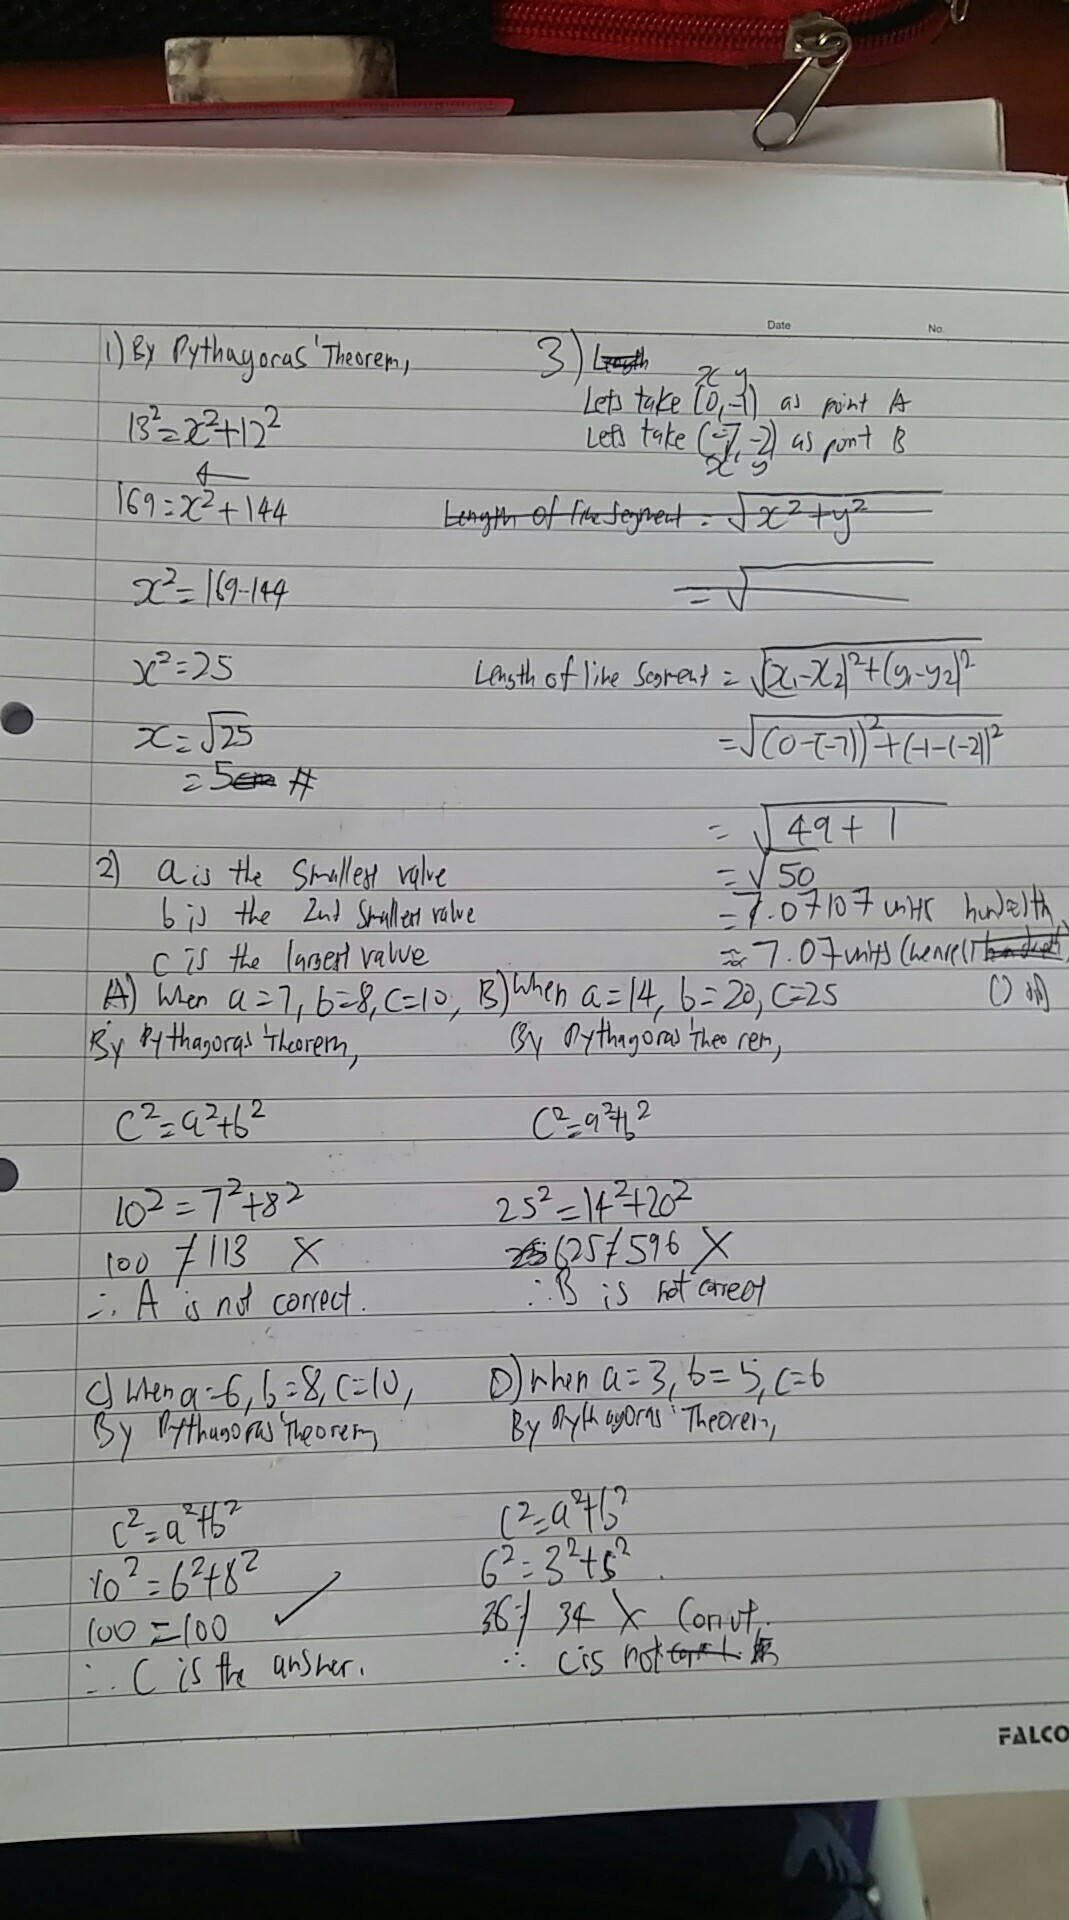 Date No.
1) By Pythagoras' Theorem,
13²=x²+12²
169=x²+144
x²=169-144
x²=25
x=√25
=5cm #
3) Length
x y
Lets take (0,-1) as point A
Lets take (-7,-2) as point B
x y
Length of line segment = √x²+y²
=√
Length of line segment = √(x₁-x₂)²+(y₁-y₂)²
=√(0-(-7))²+(-1-(-2))²
=√49+1
=√50
=7.07107 units hundredth
≈7.07 units (nearest
2) a is the smallest value
b is the 2nd smallest value
c is the largest value
A) When a=7, b=8, c=10,
By Pythagoras' Theorem,
c²=a²+b²
10²=7²+8²
100≠113 X
∴ A is not correct.
B) When a=14, b=20, c=25
By Pythagoras' Theorem,
c²=a²+b²
25²=14²+20²
625≠596 X
∴ B is not correct
C) When a=6, b=8, c=10,
By Pythagoras' Theorem,
c²=a²+b²
10²=6²+8²
100=100 ✓
∴ C is the answer.
D) When a=3, b=5, c=6
By Pythagoras' Theorem,
c²=a²+b²
6²=3²+5²
36≠34 X
∴ C is not
FALCO